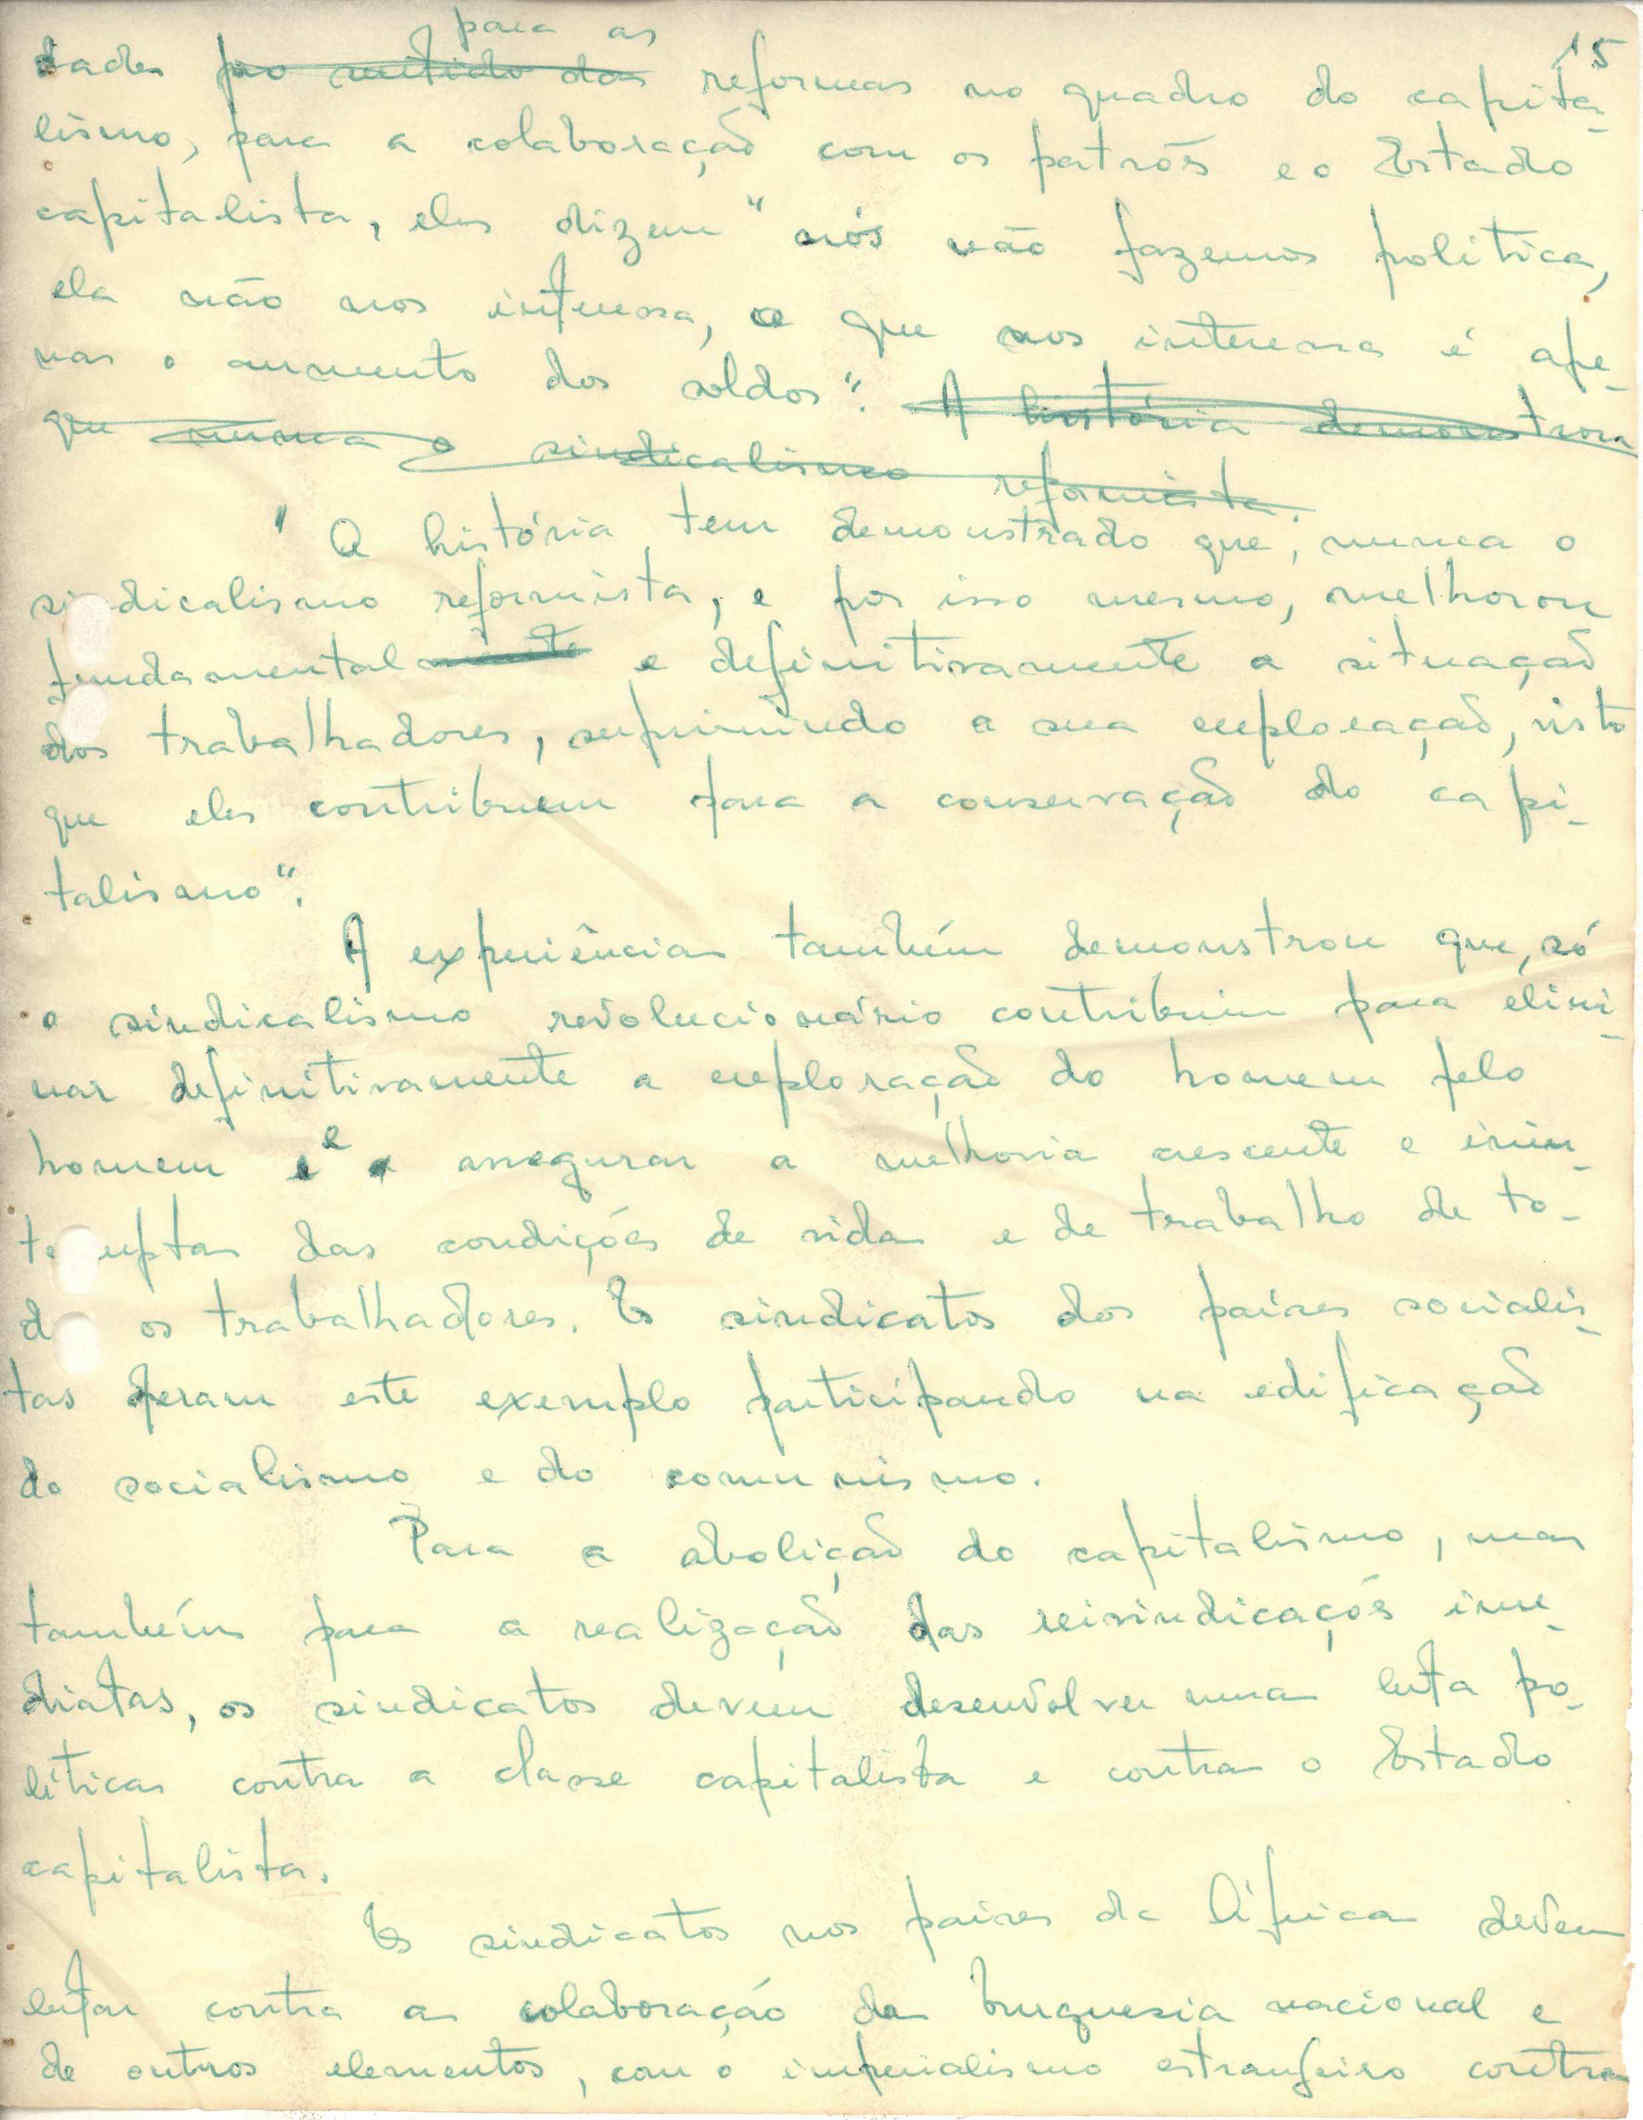 para as 15
dades pro sentido das reformas no quadro do capita-
lismo, para a colaboração com os patrões e o Estado
capitalista, eles dizem "nós não fazemos politica,
ela não nos interessa, o que nos interessa é ape-
nas o aumento dos soldos". A história demonstrou
que nunca o sindicalismo reformista.
" A história tem demonstrado que, nunca o
sindicalismo reformista, e por isso mesmo, melhorou
fundamentalmente e definitivamente a situação
dos trabalhadores, suprimindo a sua exploração, visto
que eles contribuem para a conservação do capi-
talismo".
A experiência também demonstrou que, só
o sindicalismo revolucionário contribuiu para elimi-
nar definitivamente a exploração do homem pelo
homem e assegurar a melhoria crescente e inin-
te upta das condições de vida e de trabalho de to-
d os trabalhadores. Os sindicatos dos países socialis-
tas deram este exemplo participando na edificação
do socialismo e do comunismo.
Para a abolição do capitalismo, mas
também para a realização das reivindicações ime-
diatas, os sindicatos devem desenvolver uma luta po-
lítica contra a classe capitalista e contra o Estado
capitalista.
Os sindicatos nos países da África devem
lutar contra a colaboração da burguesia nacional e
de outros elementos, com o imperialismo estrangeiro contra